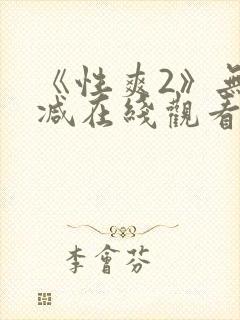 《性爽2》無
减在綫觀看
李會芬